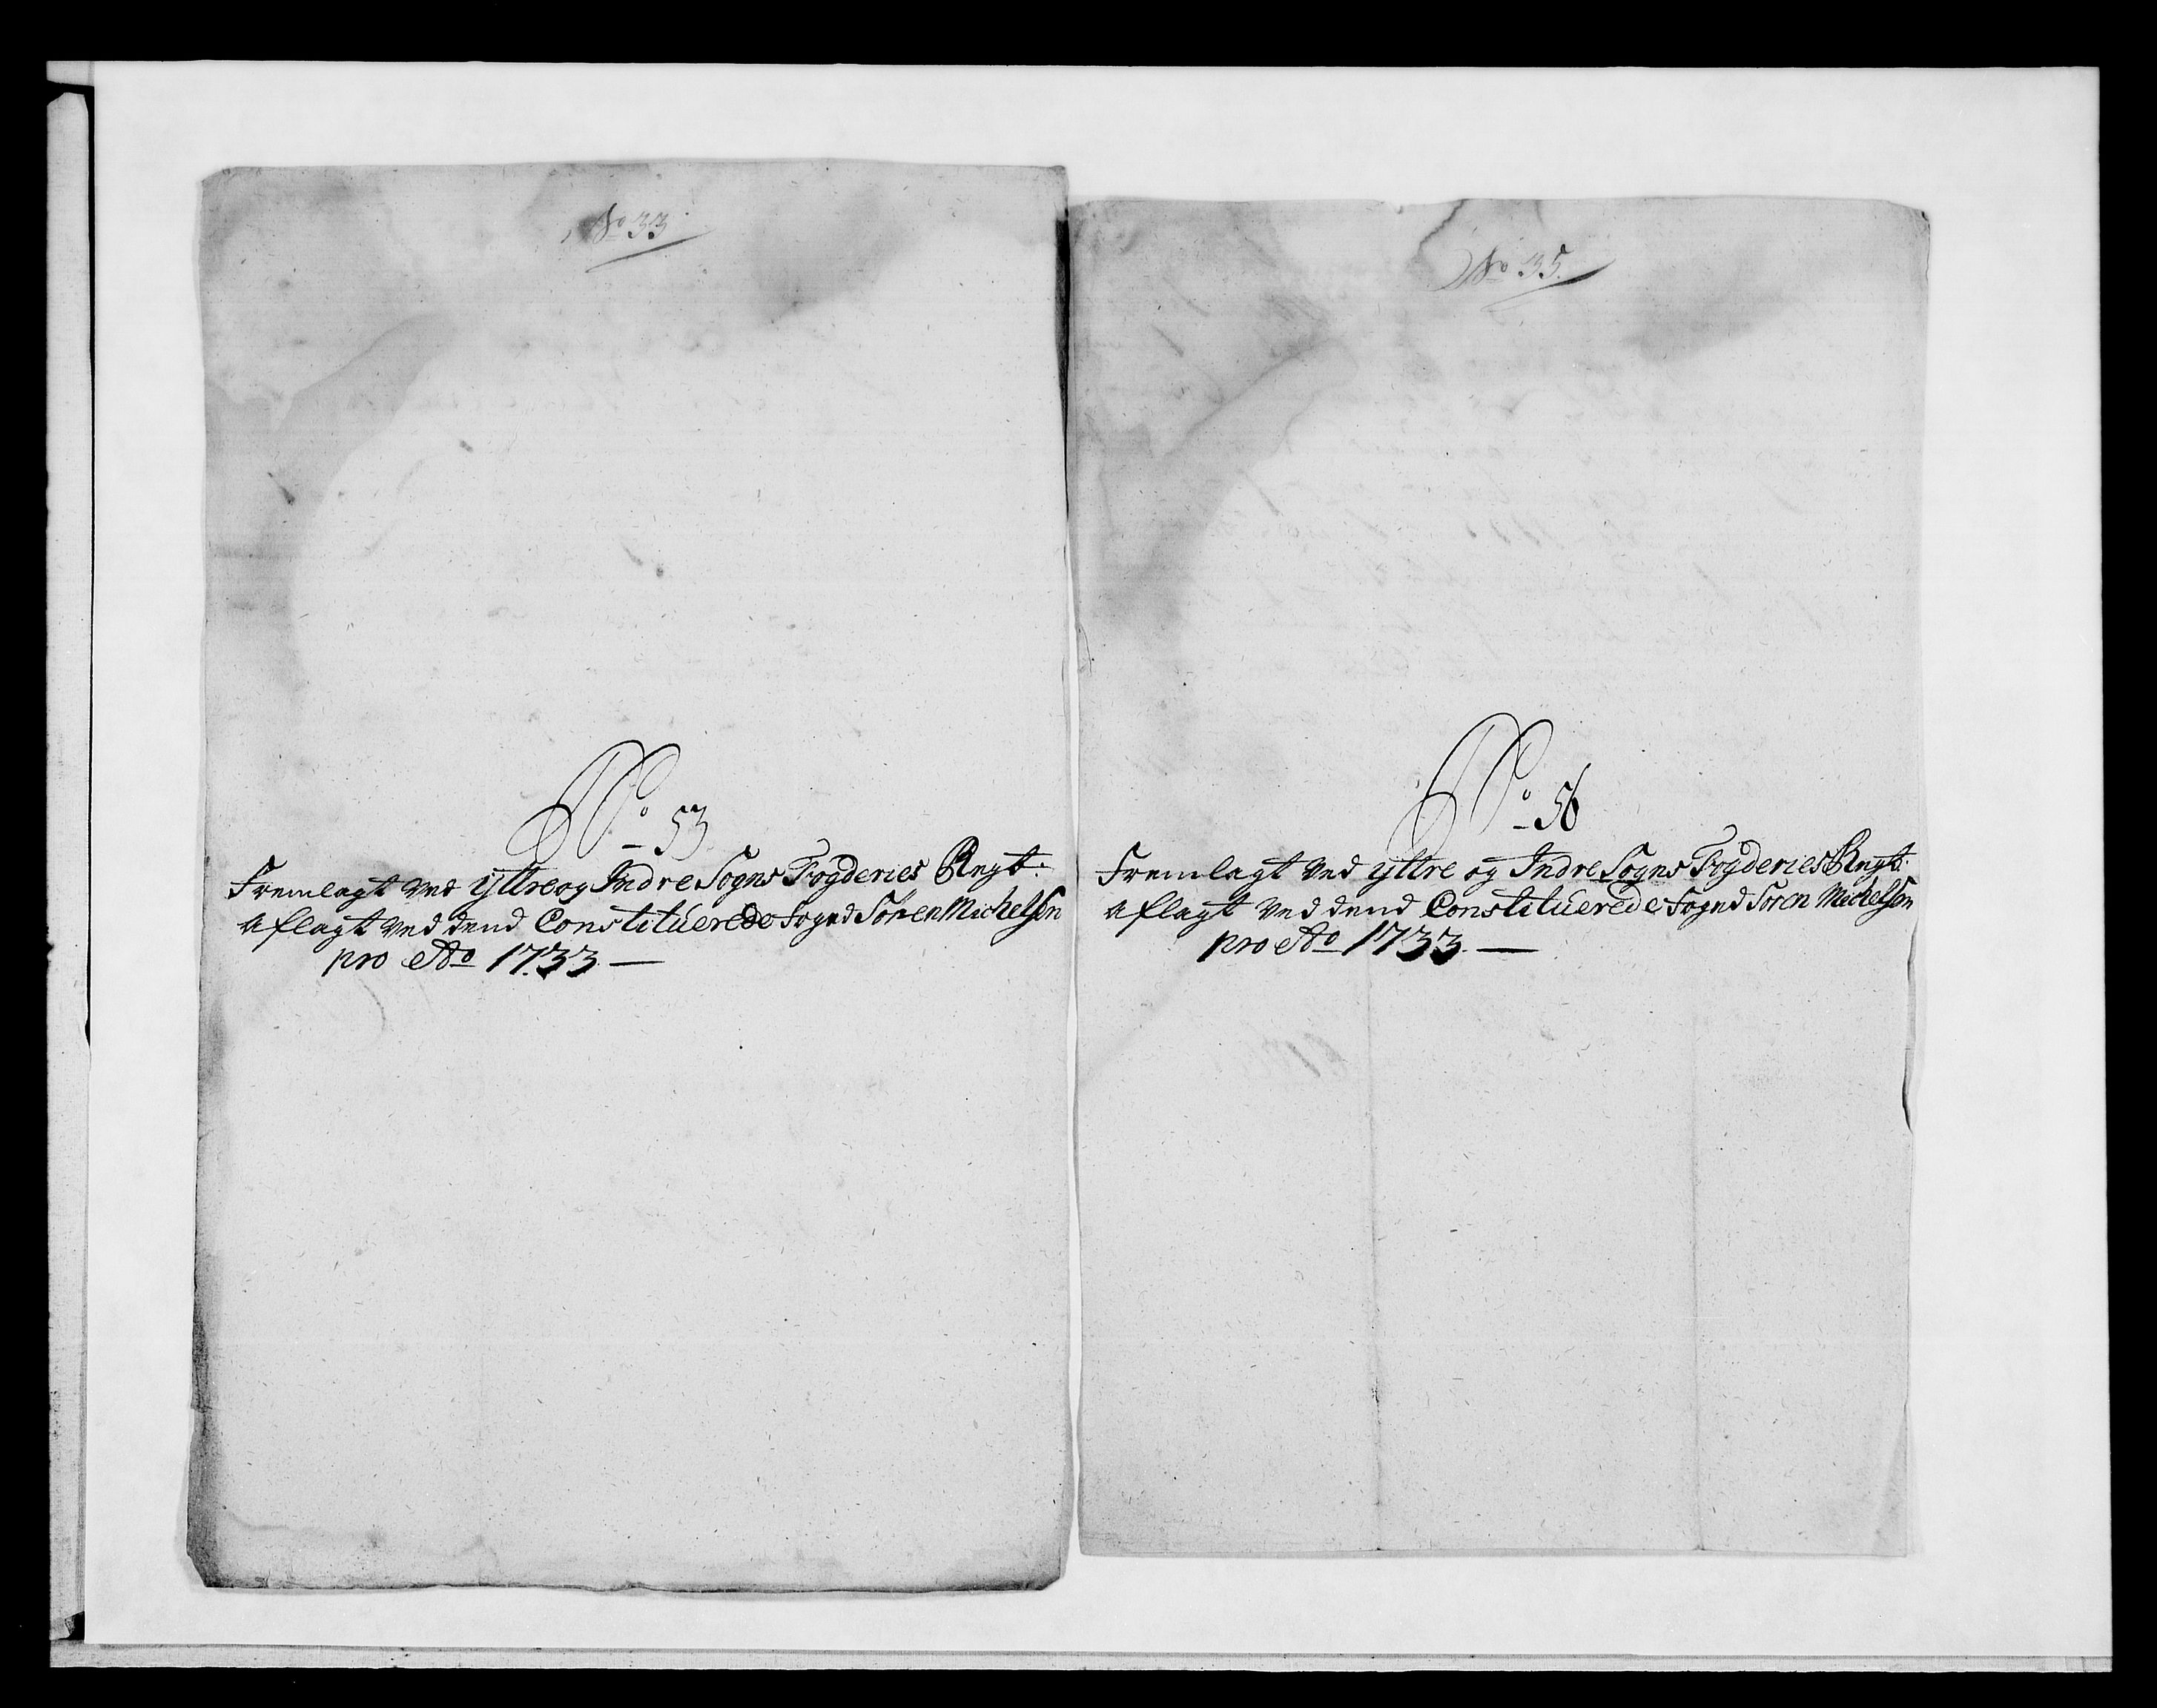 No 33
No 53
Fremlagt ved yttre og Indre Sogns Fogderies Regt:
Aflagt ved dend Constituerede Fogned Sören Michelsen
pro Ao 1733 —
No 35.
No 56
Fremlagt ved yttre og Indre Sogns Fogderies Regt:
Aflagt ved dend Constituerede Fogned Sören Michelsen
pro Ao 1733. —